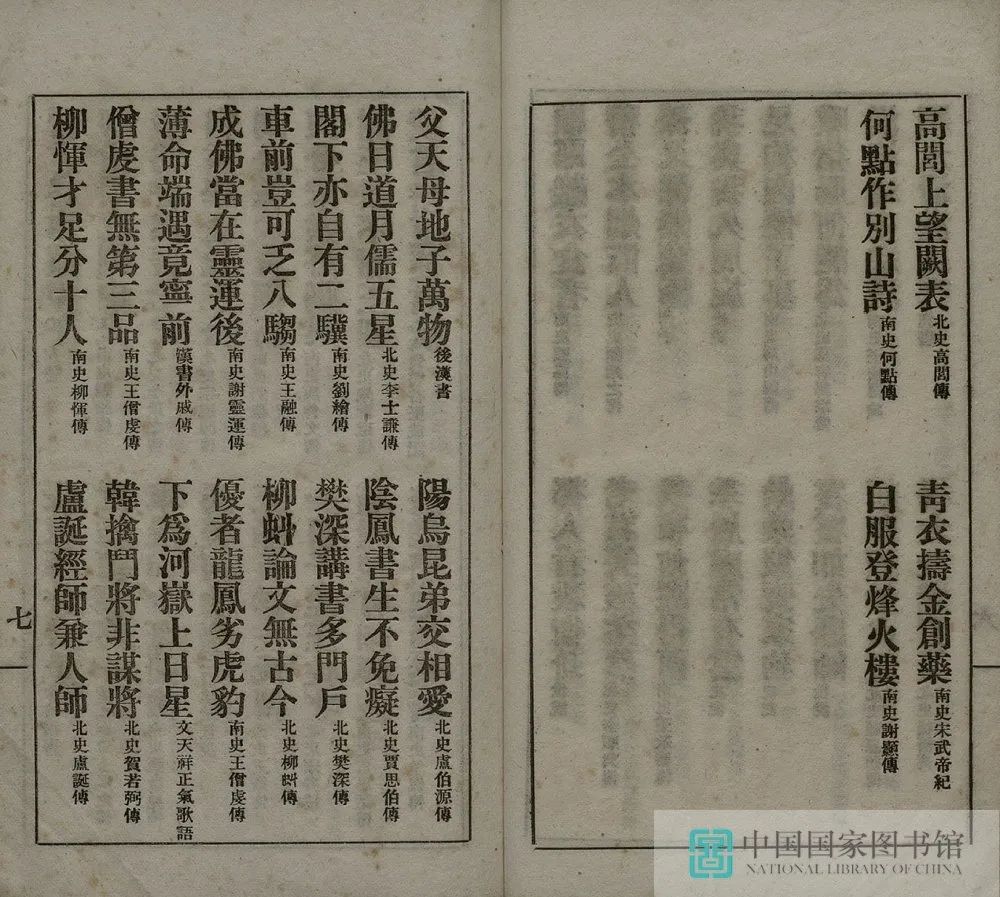 高閭上望闕表 北史高閭傳
青衣擣金創藥 南史宋武帝紀
何點作別山詩 南史何點傳
白服登烽火樓 南史謝顥傳
父天母地子萬物 後漢書
陽烏昆弟交相愛 北史盧伯源傳
佛日道月儒五星 北史李士謙傳
陰鳳書生不免癡 北史賈思伯傳
閣下亦自有二驥 南史劉繪傳
樊深講書多門戶 北史樊深傳
車前豈可乏八騶 南史王融傳
柳虯論文無古今 北史柳虯傳
成佛當在靈運後 南史謝靈運傳
優者龍鳳劣虎豹 南史王僧虔傳
薄命端遇竟寧前 漢書外戚傳
下爲河嶽上日星 文天祥正氣歌語
僧虔書無第三品 南史王僧虔傳
韓擒鬥將非謀將 北史賀若弼傳
柳惲才足分十人 南史柳惲傳
盧誕經師兼人師 北史盧誕傳
七
中国国家图书馆
NATIONAL LIBRARY OF CHINA